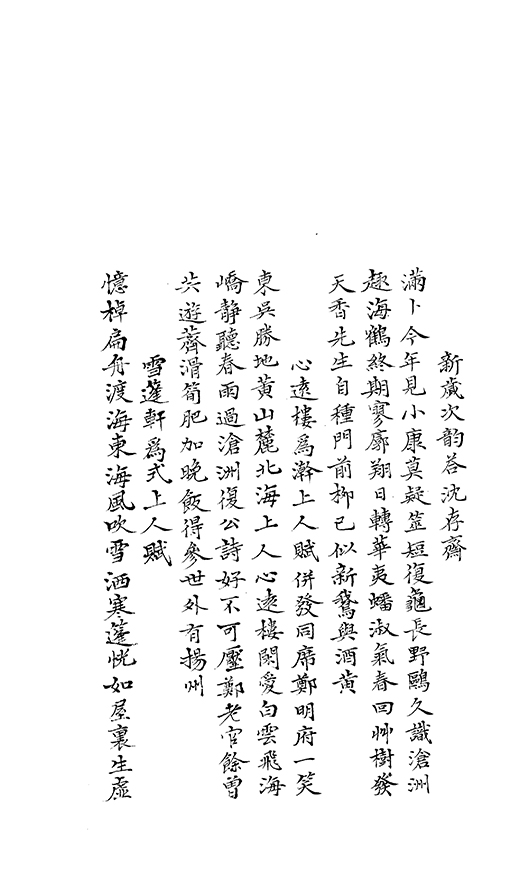 新歲次韵荅沈存齋
滿卜今年見小康莫疑筮短復龜長野鷗久識滄洲
趣海鶴終期寥廓翔日轉華夷蟠淑氣春回艸樹發
天香先生自種門前栁已似新鵞與酒黄
心遠樓爲瀚上人賦併發同席鄭明府一笑
東吳勝地黄山麓北海上人心遠樓閑愛白雲飛海
嶠静聽春雨過滄洲復公詩好不可壓鄭老官餘曽
共遊薺滑筍肥加晚飯得參世外有揚州
雪蓬軒爲式上人賦
憶棹扁舟渡海東海風吹雪洒寒蓬恍如屋裏生虛